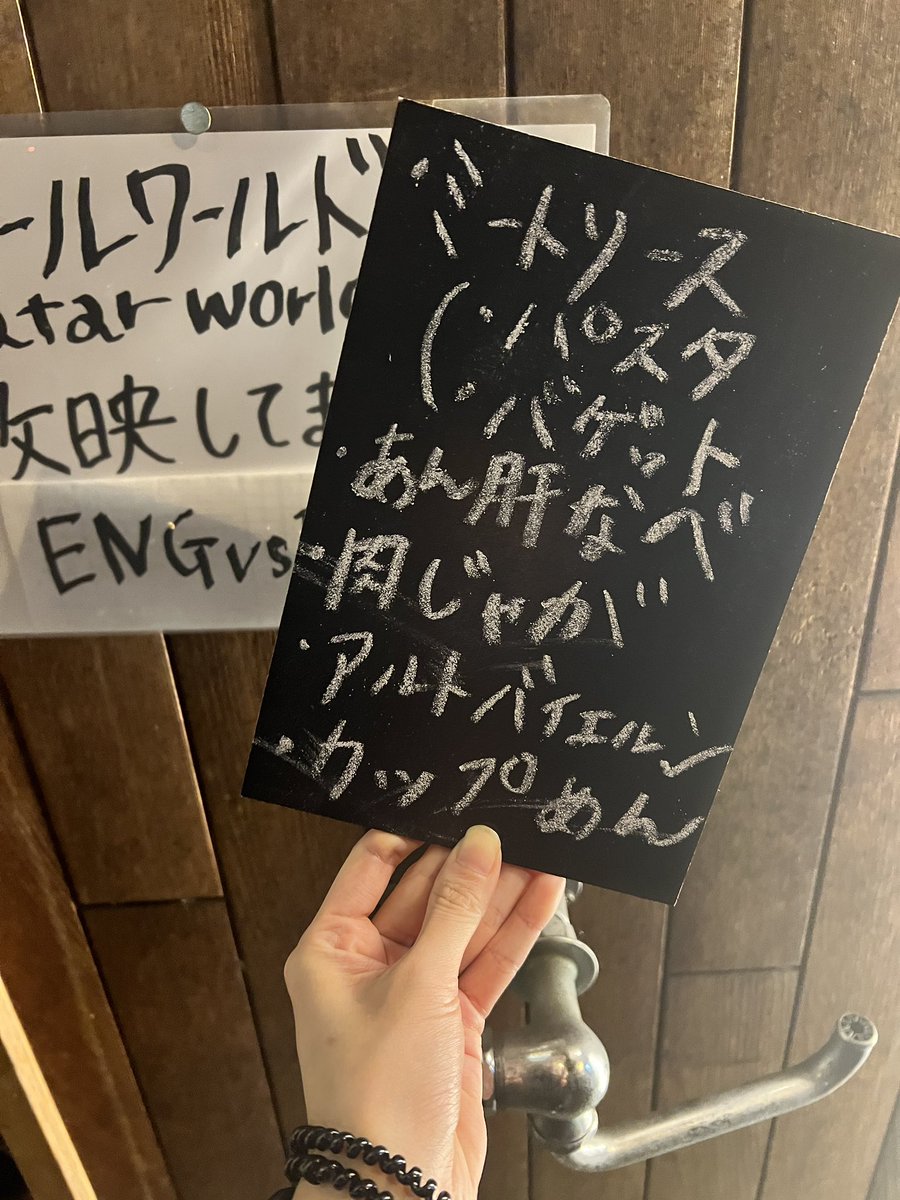 ールワールド
atar world
放映してま
ENGvs
・ミートソース
(・パスタ
(・バゲット
・あん肝なべ
・肉じゃが
・アルトバイエルン
・カップめん